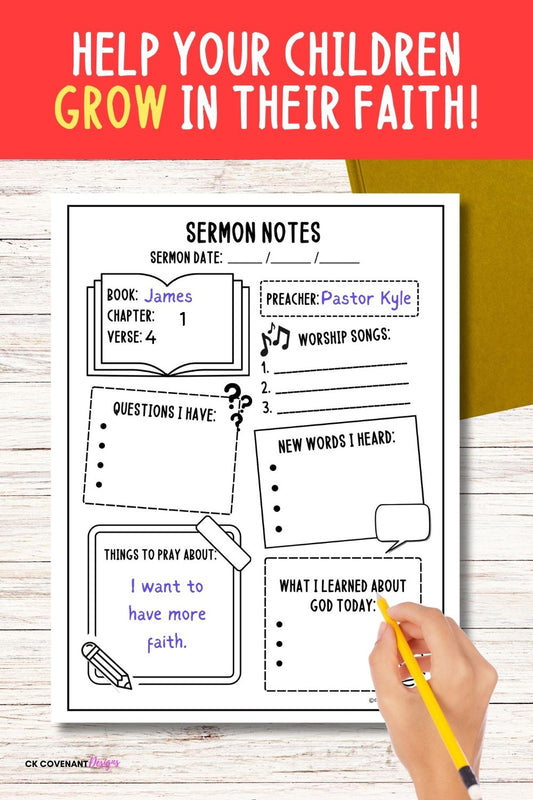 HELP YOUR CHILDREN
GROW IN THEIR FAITH!
SERMON NOTES
SERMON DATE: _____ /______ /______
BOOK: James
CHAPTER: 1
VERSE: 4
PREACHER: Pastor Kyle
WORSHIP SONGS:
1.
2.
3.
QUESTIONS I HAVE:
???
NEW WORDS I HEARD:
THINGS TO PRAY ABOUT:
I want to
have more
faith.
WHAT I LEARNED ABOUT
GOD TODAY:
CK COVENANT Designs